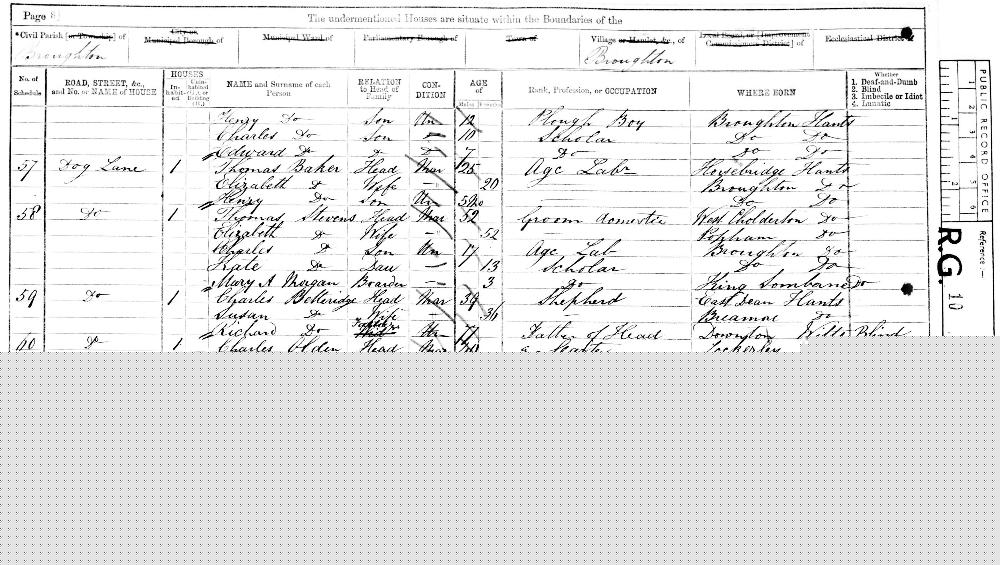 Page 8
The undermentioned Houses are situate within the Boundaries of the
Civil Parish [or Township] of City or Municipal Borough of Municipal Ward of Parliamentary Borough of Town of Village or Hamlet, &c., of Local Board, or [Improvement Commissioners District] of Ecclesiastical District of
Broughton Broughton
No. of Schedule ROAD, STREET, &c., and No. or NAME of HOUSE HOUSES Inhabited Uninhabited (U.), or Building (B.) NAME and Surname of each Person RELATION to Head of Family CONDITION AGE of Males Females Rank, Profession, or OCCUPATION WHERE BORN Whether 1. Deaf-and-Dumb 2. Blind 3. Imbecile or Idiot 4. Lunatic
Henry Do Son Un 12 Plough Boy Broughton Hants
Charles Do Son 10 Scholar Do Do
Edward Do Do Do 7 Do Do Do
57 Dog Lane 1 Thomas Baker Head Mar 25 Agc Labr Horsebridge Hants
Elizabeth Do Wife — 20 Broughton Do
Henry Do Son Un Do Do
58 Do 1 Thomas Stevens Head Mar 52 Groom domestic West Cholderton Do
Elizabeth Do Wife — 52 Popham Do
Charles D Son Un 17 Agc Lab Broughton Do
Kate Do Dau — 13 Scholar Do Do
Mary A Morgan Boarder — 3 Do King Sombourne Do
59 Do 1 Charles Belleridge Head Mar 39 Shepherd East Dean Hants
Susan Do Wife 36 Breamore Do
Richard Do Father 71 Father of Head Downton Wilts Blind
60 Do 1 Charles Olden Head Lockerley
PUBLIC RECORD OFFICE
1 2 3 4 5 6
Reference:—
R.G. 10